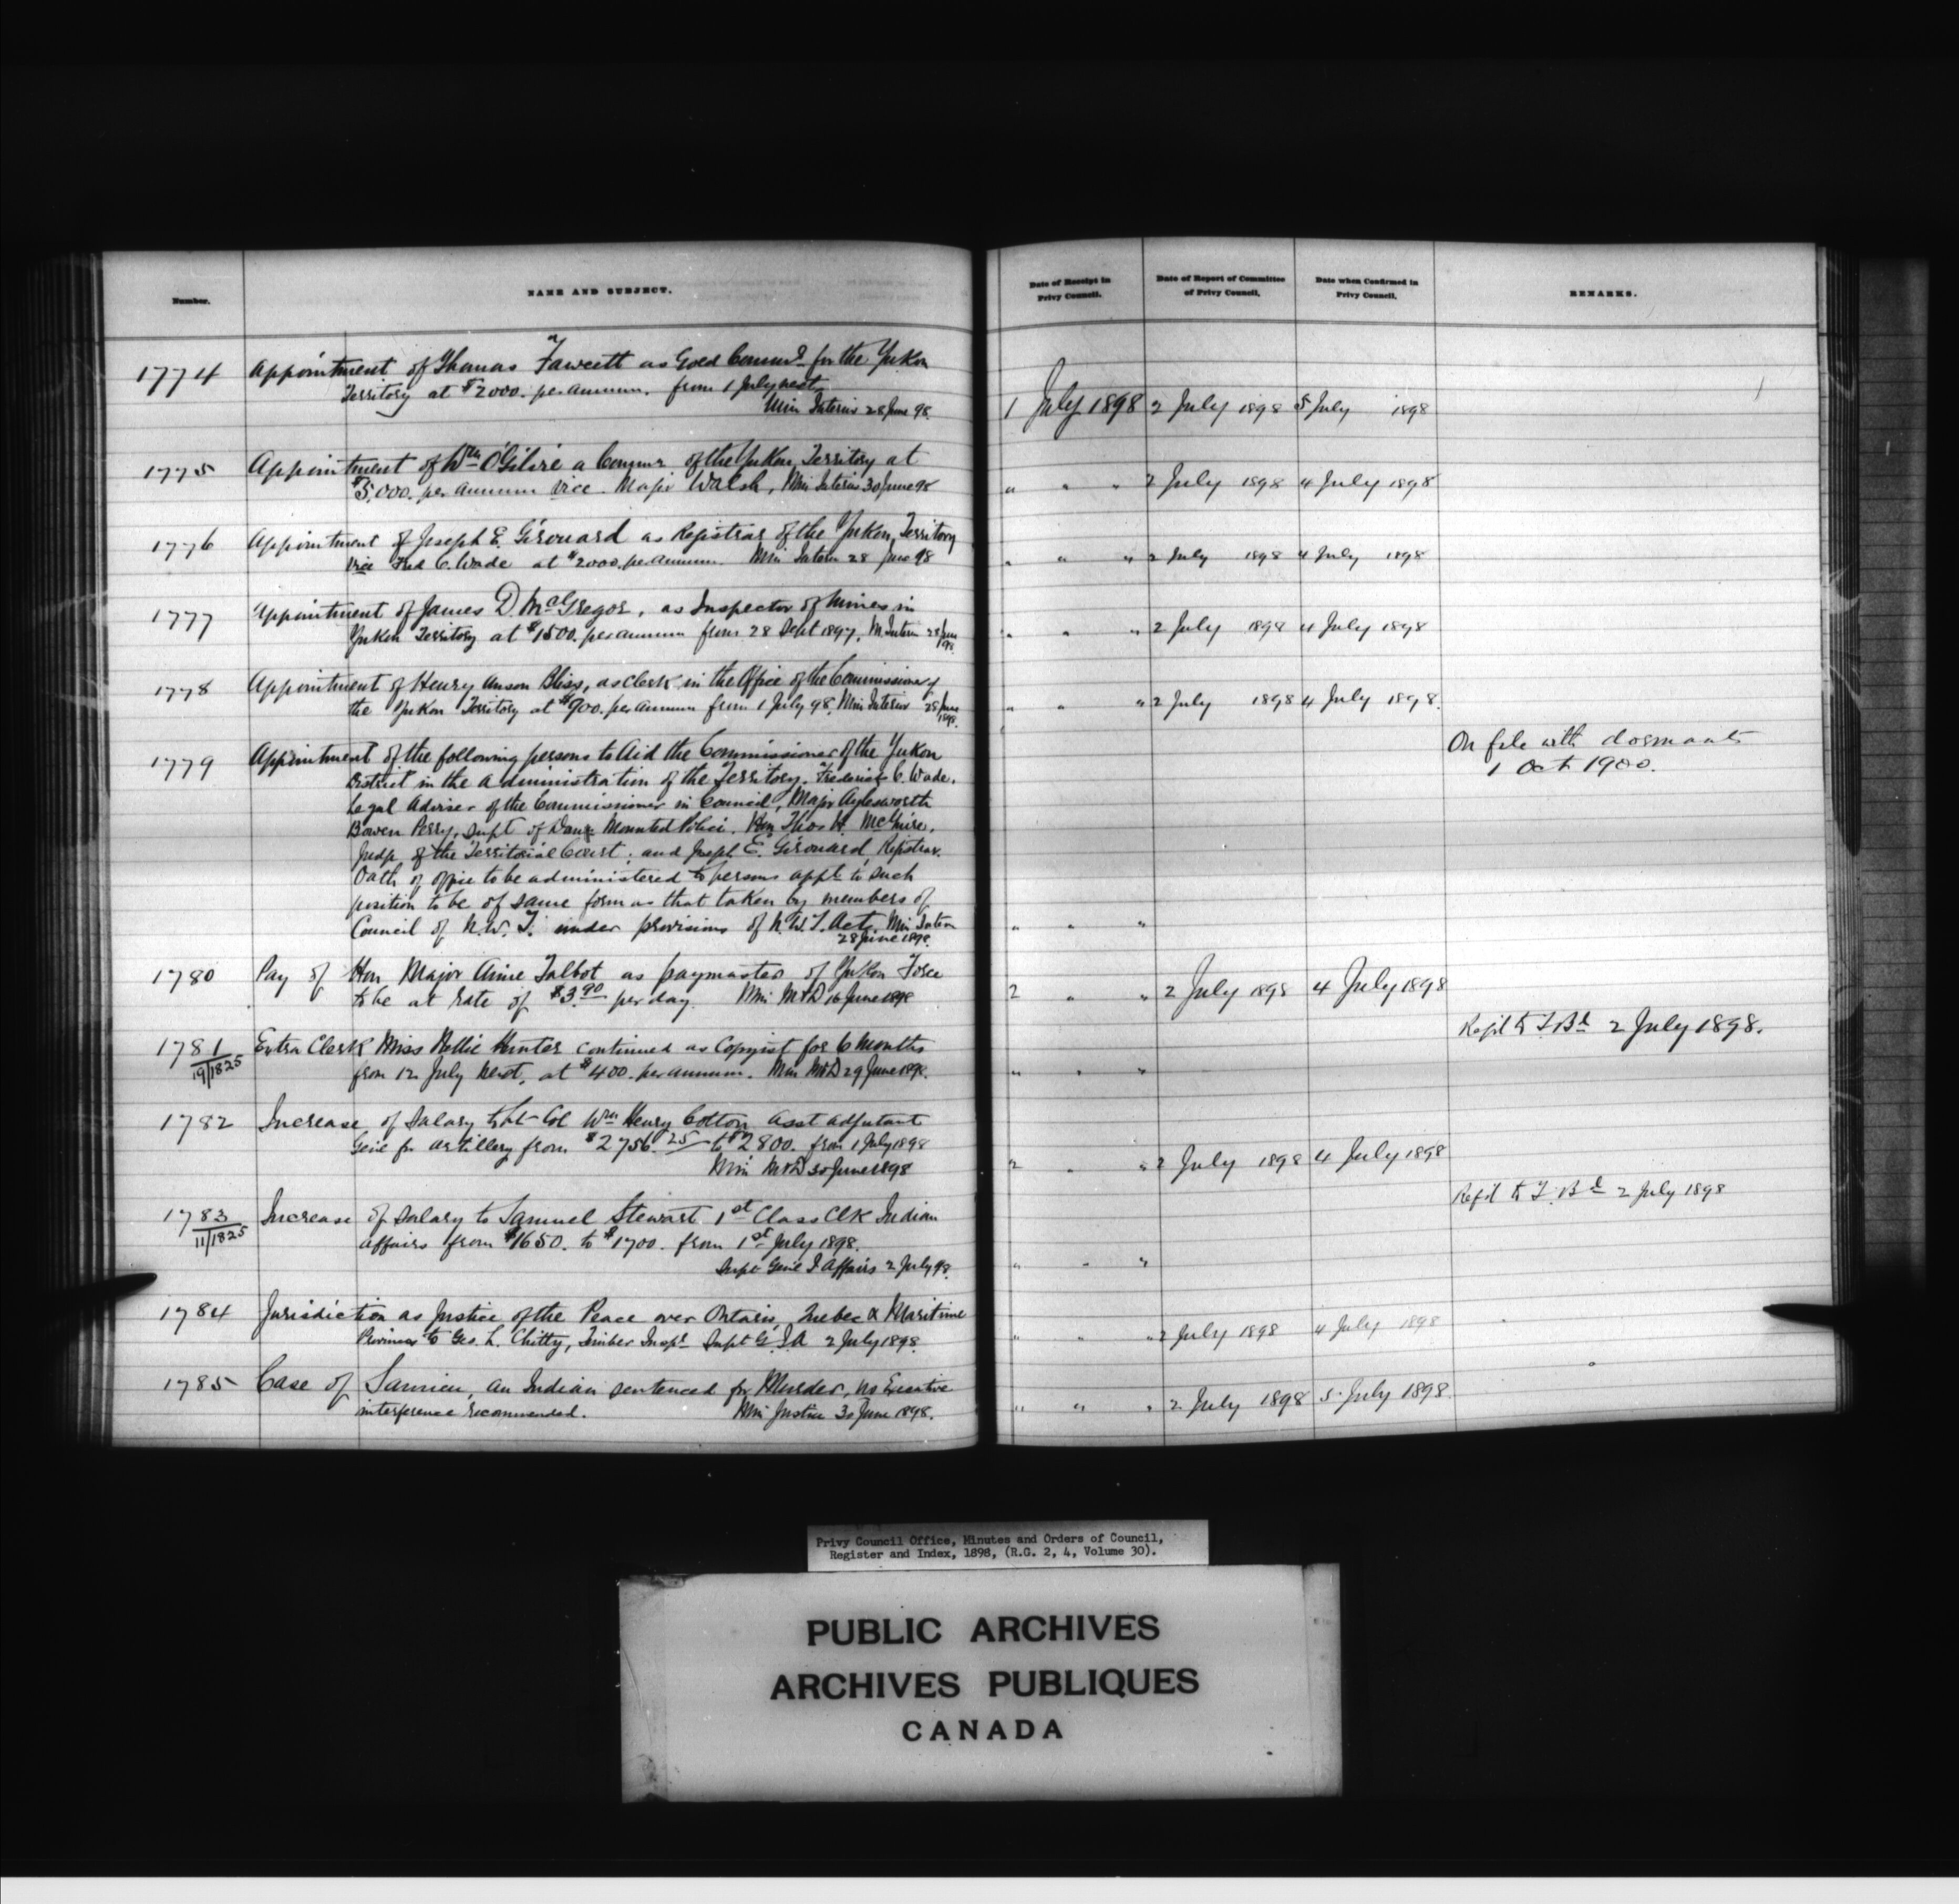 Number.
NAME AND SUBJECT.
Date of Receipt in
Privy Council.
Date of Report of Committee
of Privy Council.
Date when Confirmed in
Privy Council.
REMARKS.
1774 Appointment of Thomas Fawcett as Gold Commr for the Yukon
Territory at $2000. per annum. from 1 July next
Min Interior 28 June 98.
1 July 1898 2 July 1898 5 July 1898
1775 Appointment of Wm O'Gilvie a Commr of the Yukon Territory at
$5,000. per annum vice Major Walsh, Min Interior 30 June 98
" " " 2 July 1898 4 July 1898
1776 Appointment of Joseph E. Girouard as Registrar of the Yukon Territory
vice Fred C. Wade at $2000. per annum. Min Interior 28 June 98
" " " 2 July 1898 4 July 1898
1777 Appointment of James D. McGregor, as Inspector of Mines in
Yukon Territory at $1500. per annum from 28 Sept 1897, M. Interior 28 June 98.
" " " 2 July 1898 4 July 1898
1778 Appointment of Henry Anson Bliss, as clerk in the Office of the Commissioner of
the Yukon Territory at $900. per annum from 1 July 98. Min Interior 28 June 1898.
" " " 2 July 1898 4 July 1898.
1779 Appointment of the following persons to Aid the Commissioner of the Yukon
District in the administration of the Territory. Frederick C. Wade.
Legal Adviser of the Commissioner in Council, Major Aylesworth
Bowen Perry, Supt of Mounted Police. Hon Thos H. McGuire.
Judge of the Territorial Court; and Joseph E. Girouard, Registrar.
Oath of office to be administered to persons appd to such
position to be of same form as that taken by members of
Council of N.W.T. under provisions of N.W.T. Act, Min Interior
28 June 1898.
" " "
On file with dormants
1 Oct 1900.
1780 Pay of Hon Major Aime Talbot as paymaster of Yukon Force
to be at rate of $3.90 per day. Min M&D 16 June 1898
2 " " 2 July 1898 4 July 1898
1781 Extra Clerk Miss Nellie Hunter continued as Copyist for 6 months
19/1825 from 12 July next, at $400. per annum. Min M&D 29 June 1898.
" " "
Refd to T. Bd 2 July 1898.
1782 Increase of Salary to Lt-Col Wm Henry Cotton, Asst Adjutant
Genl for Artillery from $2756.25 to $2800. from 1 July 1898
Min M&D 30 June 1898
2 " " 2 July 1898 4 July 1898
1783 Increase of Salary to Samuel Stewart 1st Class Clk Indian
11/1825 affairs from $1650. to $1700. from 1st July 1898.
Supt Genl I Affairs 2 July 98.
" " "
Refd to T. Bd 2 July 1898
1784 Jurisdiction as Justice of the Peace over Ontario, Quebec & Maritime
Provinces to Geo. L. Chitty, Timber Inspr Supt G.I.A 2 July 1898.
" " " 2 July 1898 4 July 1898
1785 Case of an Indian sentenced for Murder, no Executive
interference recommended. Min Justice 30 June 1898.
" " " 2 July 1898 5 July 1898.
Privy Council Office, Minutes and Orders of Council,
Register and Index, 1898, (R.G. 2, 4, Volume 30).
PUBLIC ARCHIVES
ARCHIVES PUBLIQUES
CANADA